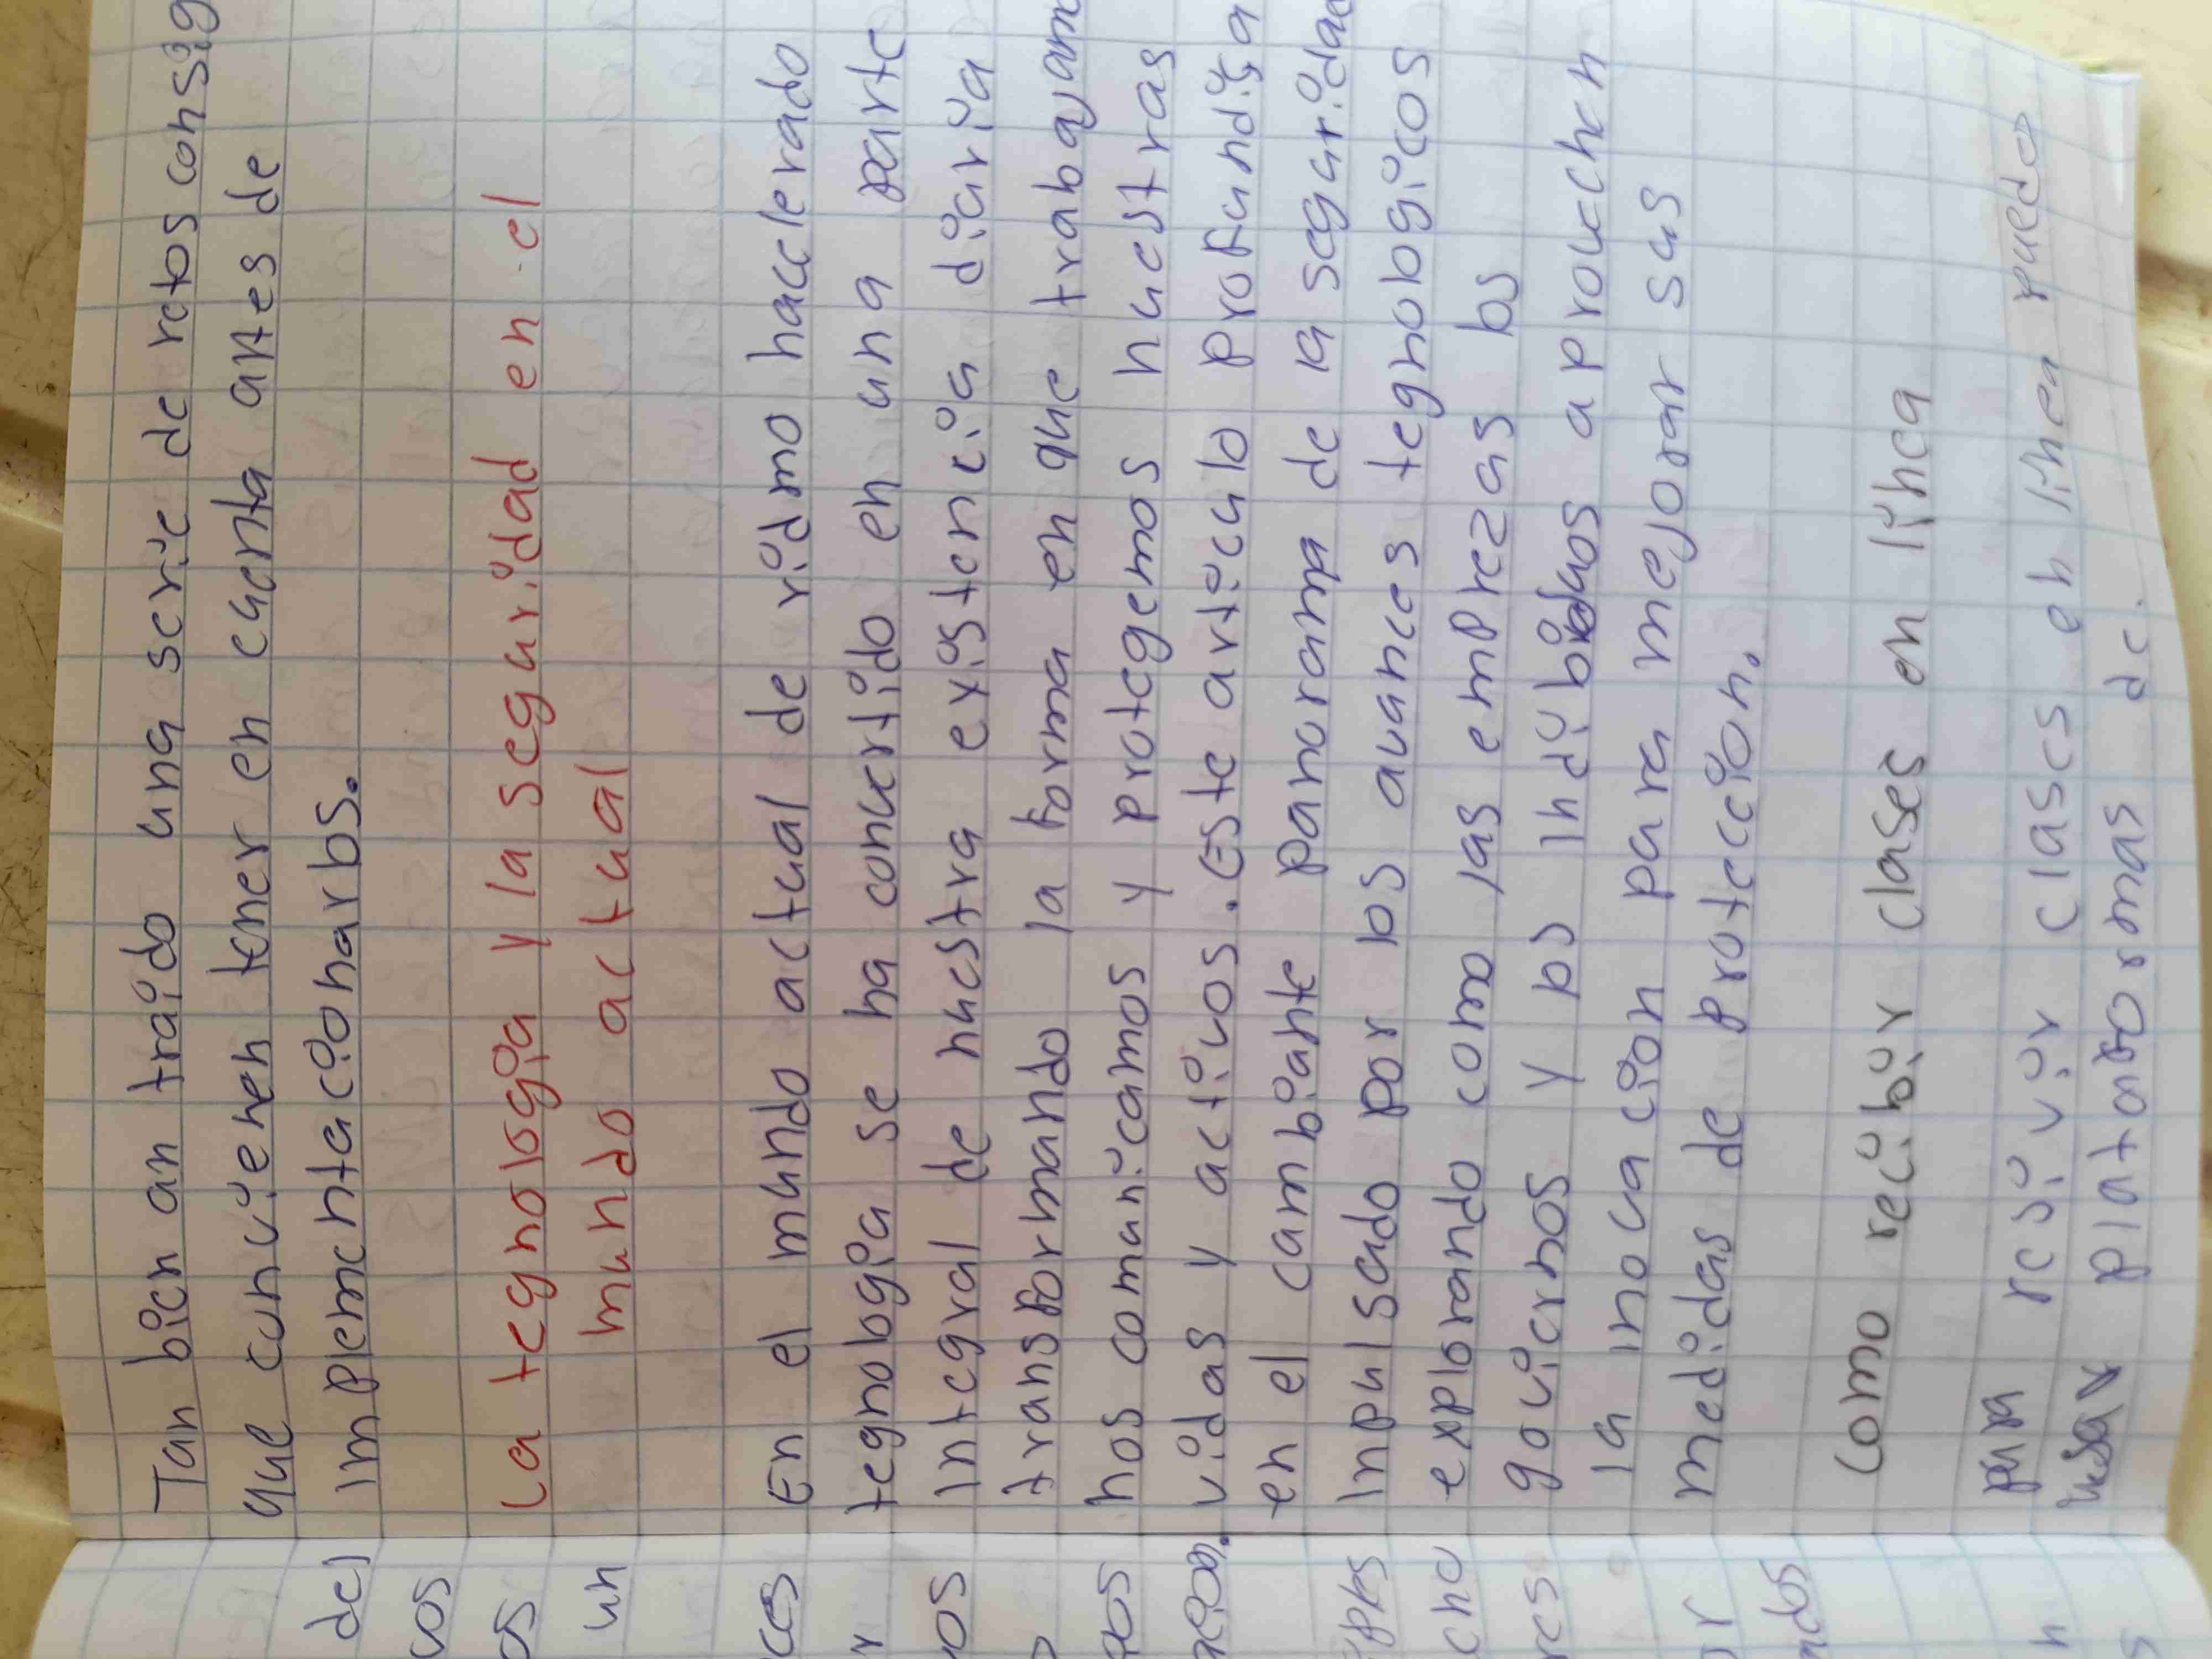 Tan bien an traido una serie de retos consig
que convienen tener en cuenta antes de
implementacionarlos.
La tegnologia y la seguridad en el
mundo actual
En el mundo actual de ridmo haccelerado
tegnologia se ha convertido en una parte
integral de nuestra existencia diaria
transformando la forma en que trabajam
nos comunicamos y protegemos nuestras
vidas y activos. Este articulo profundiza
en el cambiante panorama de la seguridad
inpulsado por los avances tegnologicos
explorando como las emprezas los
goviernos y los indibiduos aprouechen
la inovacion para mejorar sus
medidas de protección.
como recibir clases en linea
para resivir clases en linea puedo
usar plataformas de.
del
cos
os
un
ces
r
nos
cho
res
or
ados
n
s